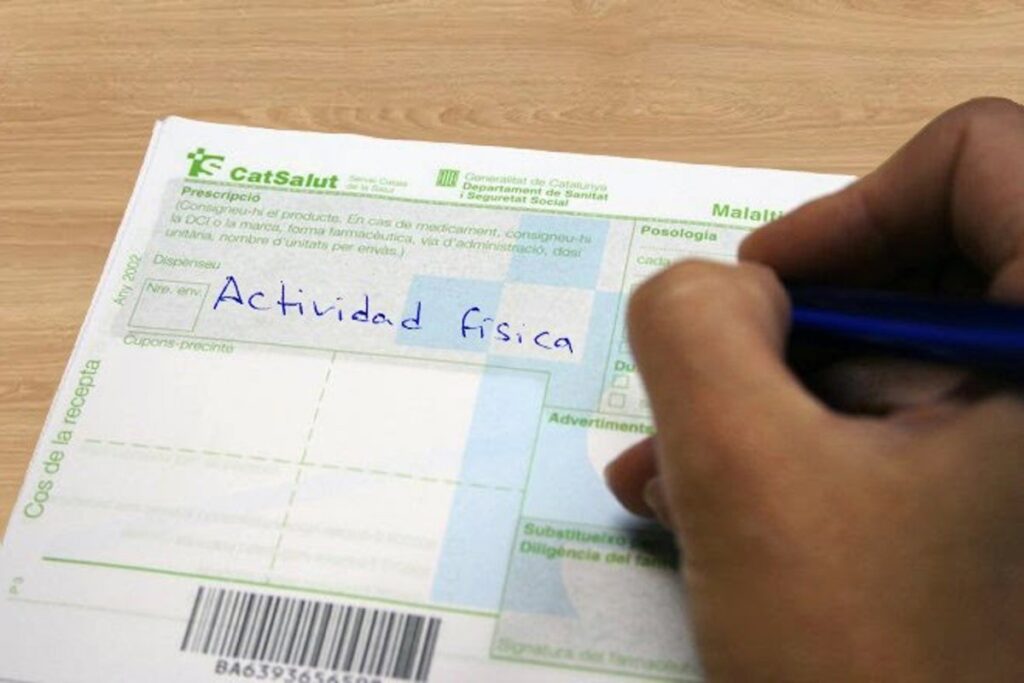 CatSalut
Servei Català
de la Salut
Generalitat de Catalunya
Departament de Sanitat
i Seguretat Social
Prescripció
(Consigneu-hi el producte. En cas de medicament, consigneu-hi
la DCI o la marca, forma farmacèutica, via d'administració, dosi
unitària, nombre d'unitats per envàs.)
Dispenseu
Nre. env.
Actividad física
Malalti
Posologia
cada
Du
Cupons-precinte
Any 2002
Cos de la recepta
Advertiments
Substitueixo
Diligència del farm
Signatura del farmacèutic
P3
BA6393656